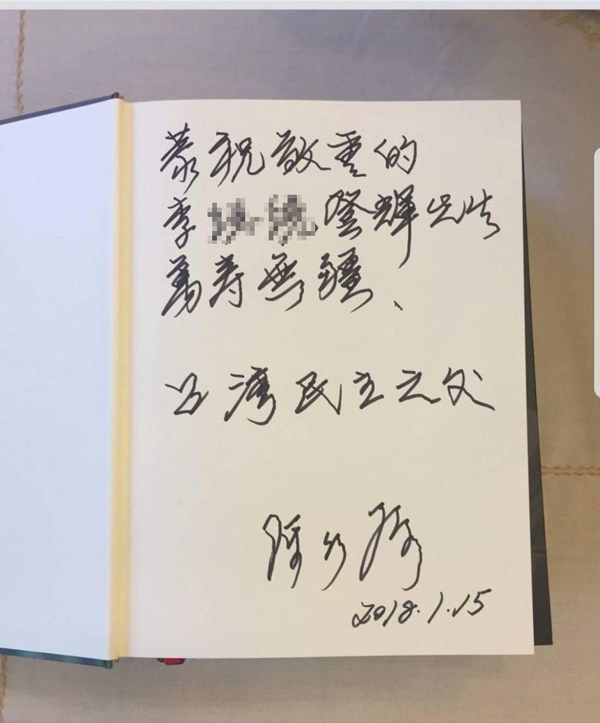 恭祝敬重的
李 登輝先生
萬壽無疆、
台灣民主之父
陳
2018.1.15